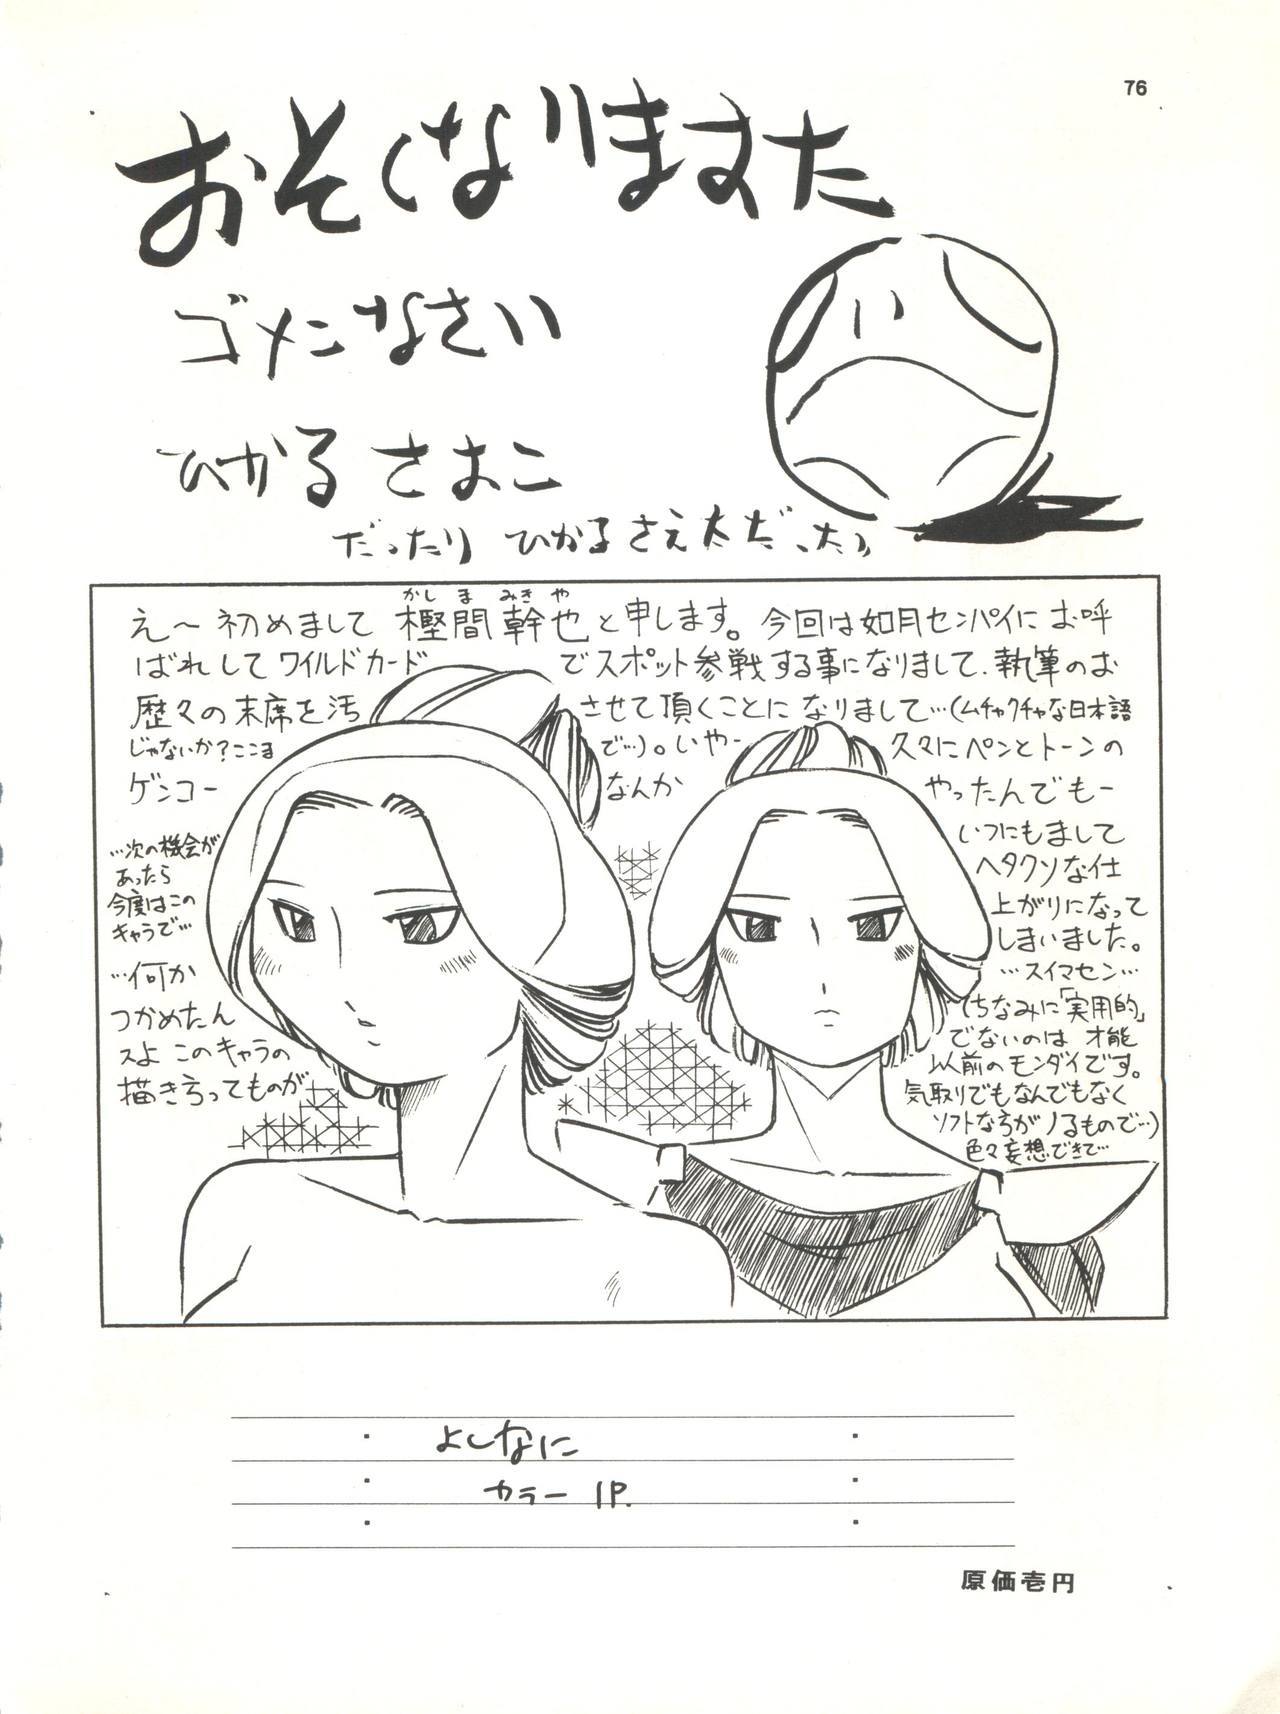 76
おそくなりまスた
ゴメンなさい
ひかる さおこ
だったり ひかるさえ太だったり
え〜初めまして 樫間幹也と申します。今回は如月センパイにお呼
かしまみきや
ばれしてワイルドカードでスポット参戦する事になりまして、執筆のお
歴々の末席を汚させて頂くことになりまして…(ムチャクチャな日本語
じゃないか?ここまで…)。いやー久々にペンとトーンの
ゲンコーなんかやったんでもー
いつにもまして
ヘタクソな仕
上がりになって
しまいました。
…スイマセン…
(ちなみに「実用的」
でないのは 才能
以前のモンダイです。
気取りでもなんでもなく
ソフトな方がノるもので…)
色々妄想できて…
…次の機会が
あったら
今度はこの
キャラで…
…何か
つかめたん
スよ このキャラの
描き方ってものが
よしなに
カラー 1P.
原価壱円